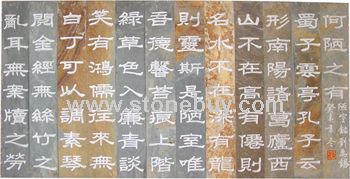 山不在高有僊則
名水不在深有龍
則靈斯是陋室唯
吾德馨苔痕上階
綠草色入簾青談
笑有鴻儒往來無
白丁可以調素琴
閱金經無絲竹之
亂耳無案牘之勞
形南陽諸葛廬西
蜀子雲亭孔子云
何陋之有
陋室銘劉禹錫
www.stonebuy.com